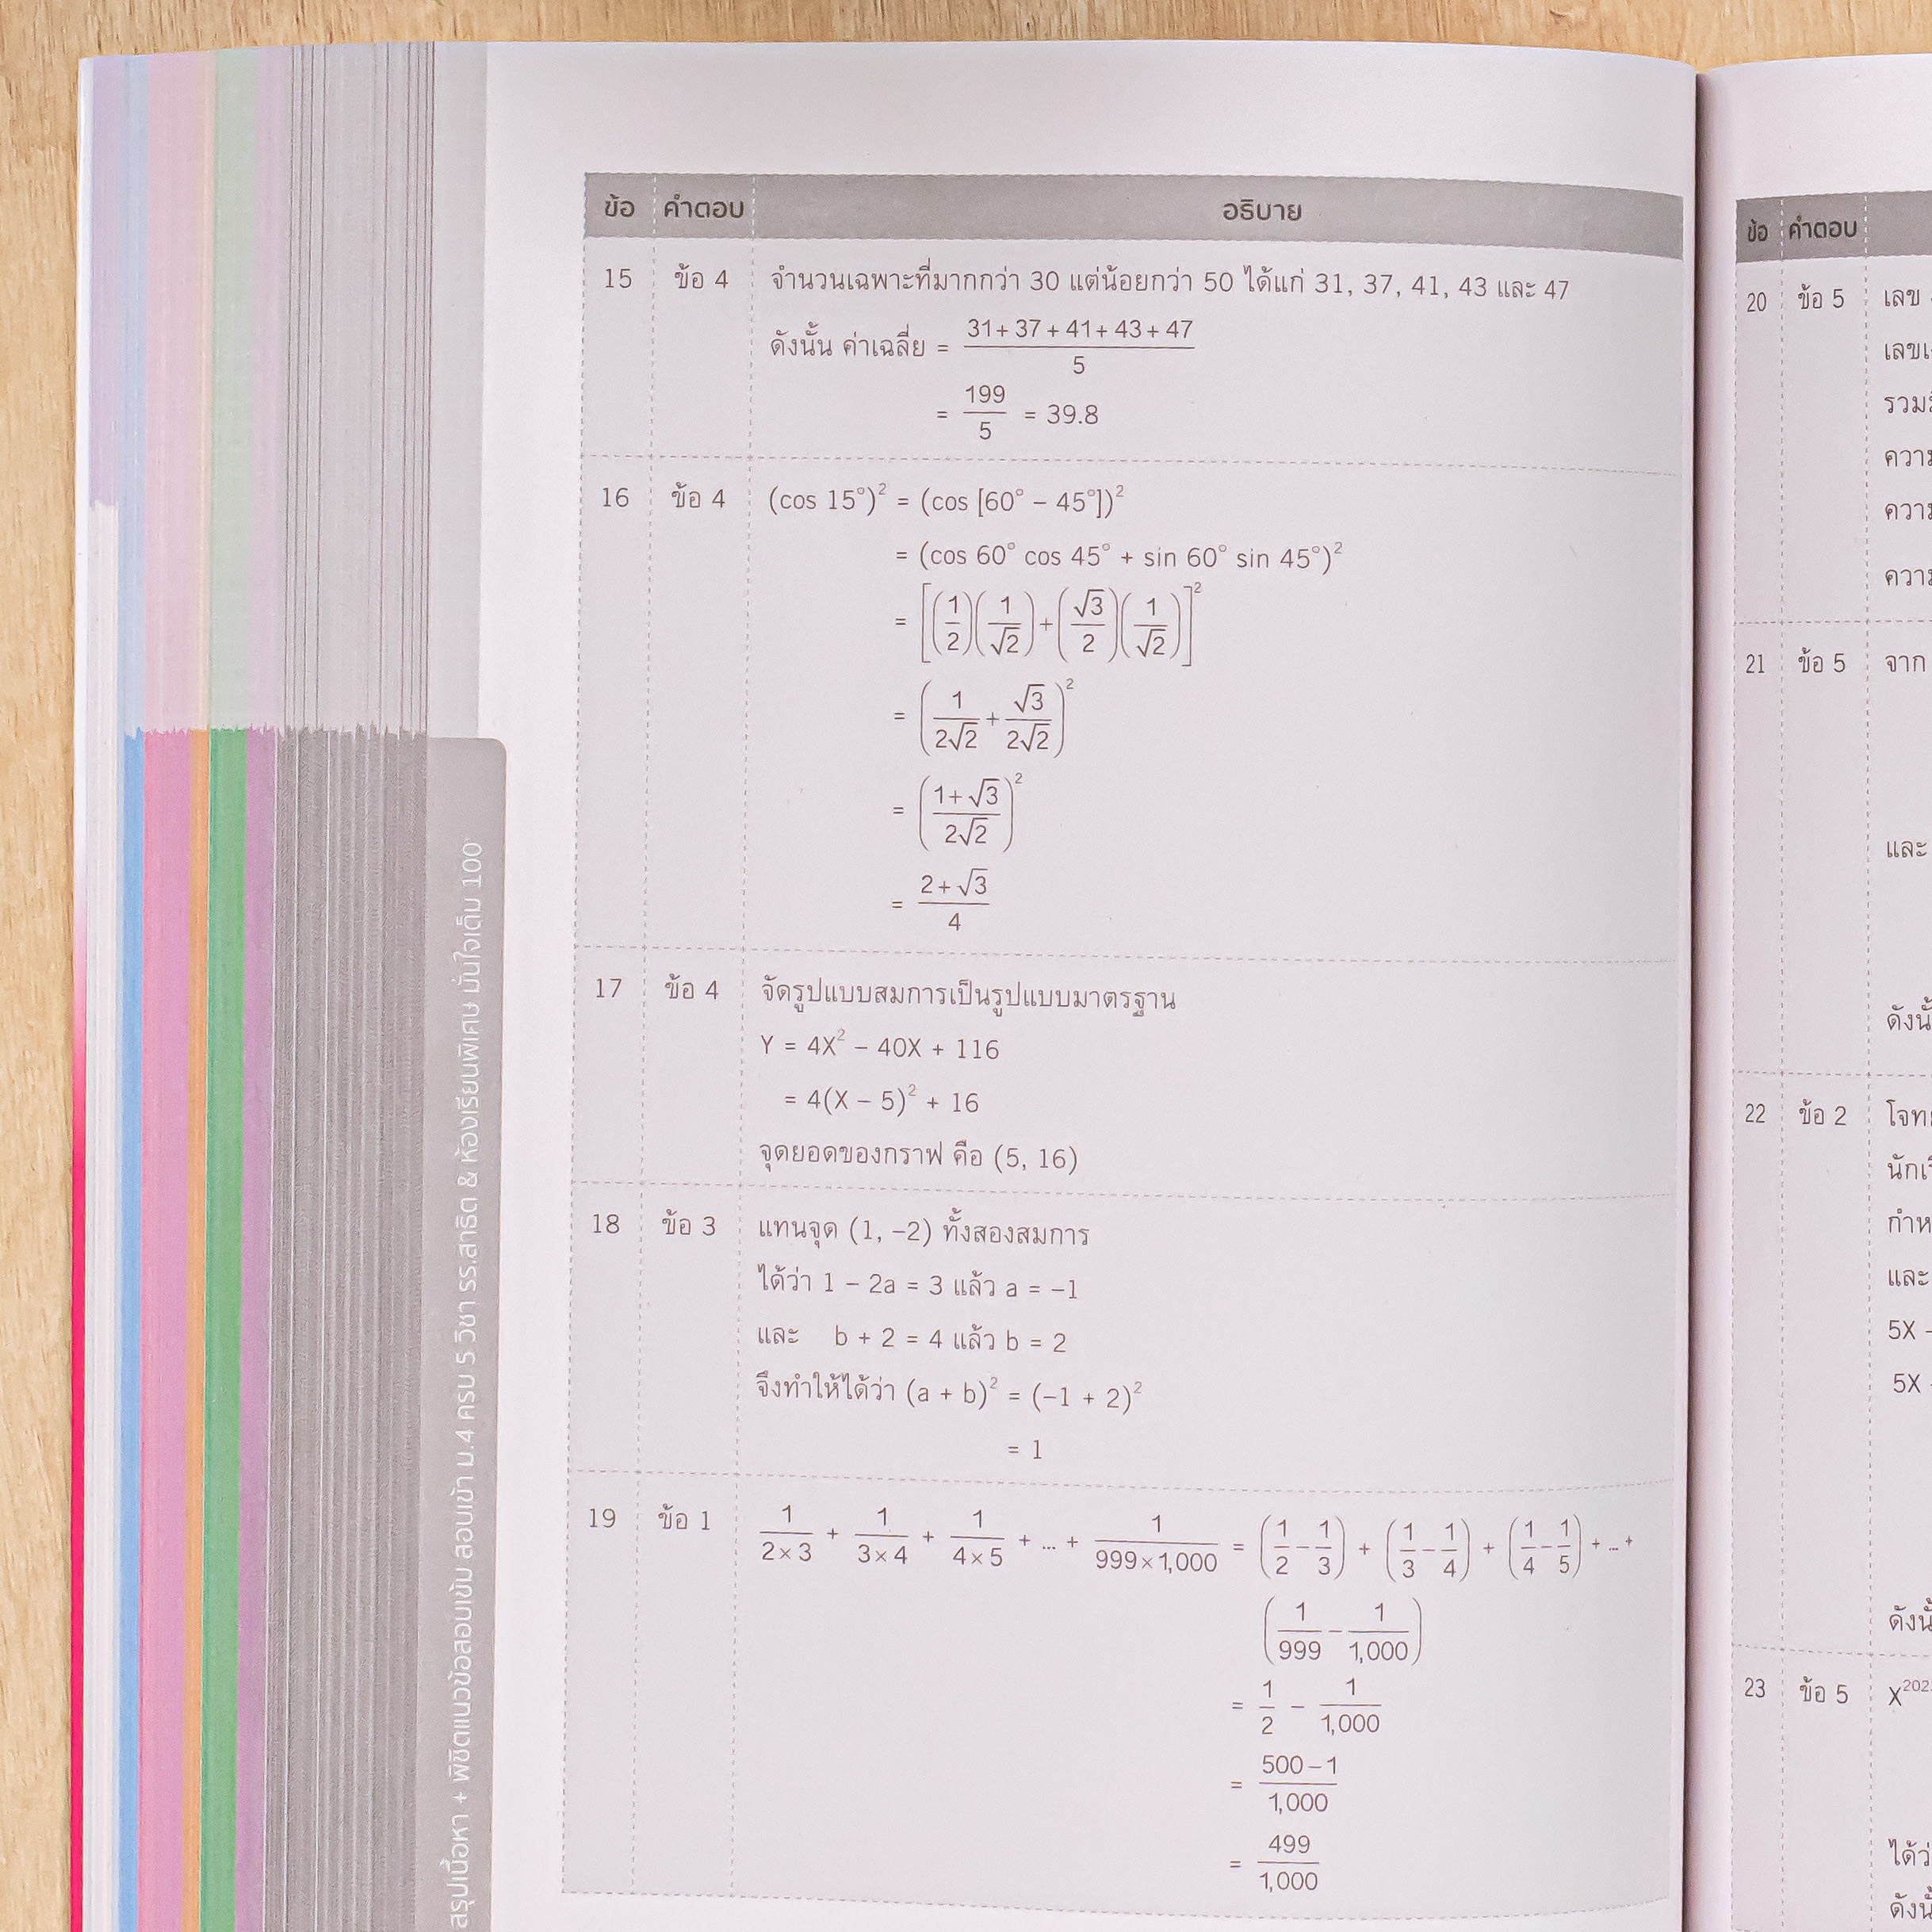 ข้อ คำตอบ อธิบาย
15 ข้อ 4 จำนวนเฉพาะที่มากกว่า 30 แต่น้อยกว่า 50 ได้แก่ 31, 37, 41, 43 และ 47
ดังนั้น ค่าเฉลี่ย = (31 + 37 + 41 + 43 + 47)/5
= 199/5 = 39.8
16 ข้อ 4 (cos 15°)² = (cos [60° – 45°])²
= (cos 60° cos 45° + sin 60° sin 45°)²
= [(1/2)(1/√2) + (√3/2)(1/√2)]²
= (1/2√2 + √3/2√2)²
= ((1+√3)/2√2)²
= (2+√3)/4
17 ข้อ 4 จัดรูปแบบสมการเป็นรูปแบบมาตรฐาน
Y = 4X² – 40X + 116
= 4(X – 5)² + 16
จุดยอดของกราฟ คือ (5, 16)
18 ข้อ 3 แทนจุด (1, –2) ทั้งสองสมการ
ได้ว่า 1 – 2a = 3 แล้ว a = –1
และ b + 2 = 4 แล้ว b = 2
จึงทำให้ได้ว่า (a + b)² = (–1 + 2)²
= 1
19 ข้อ 1 1/(2×3) + 1/(3×4) + 1/(4×5) + ... + 1/(999×1,000) = (1/2 – 1/3) + (1/3 – 1/4) + (1/4 – 1/5) + ... +
(1/999 – 1/1,000)
= 1/2 – 1/1,000
= (500 – 1)/1,000
= 499/1,000
สรุปเนื้อหา + พิชิตแนวข้อสอบเข้ม สอบเข้า ม.4 ครบ 5 วิชา รร.สาธิต & ห้องเรียนพิเศษ มั่นใจเต็ม 100
ข้อ คำตอบ
20 ข้อ 5 เลข
21 ข้อ 5 จาก
และ
22 ข้อ 2
และ
5X –
5X
23 ข้อ 5